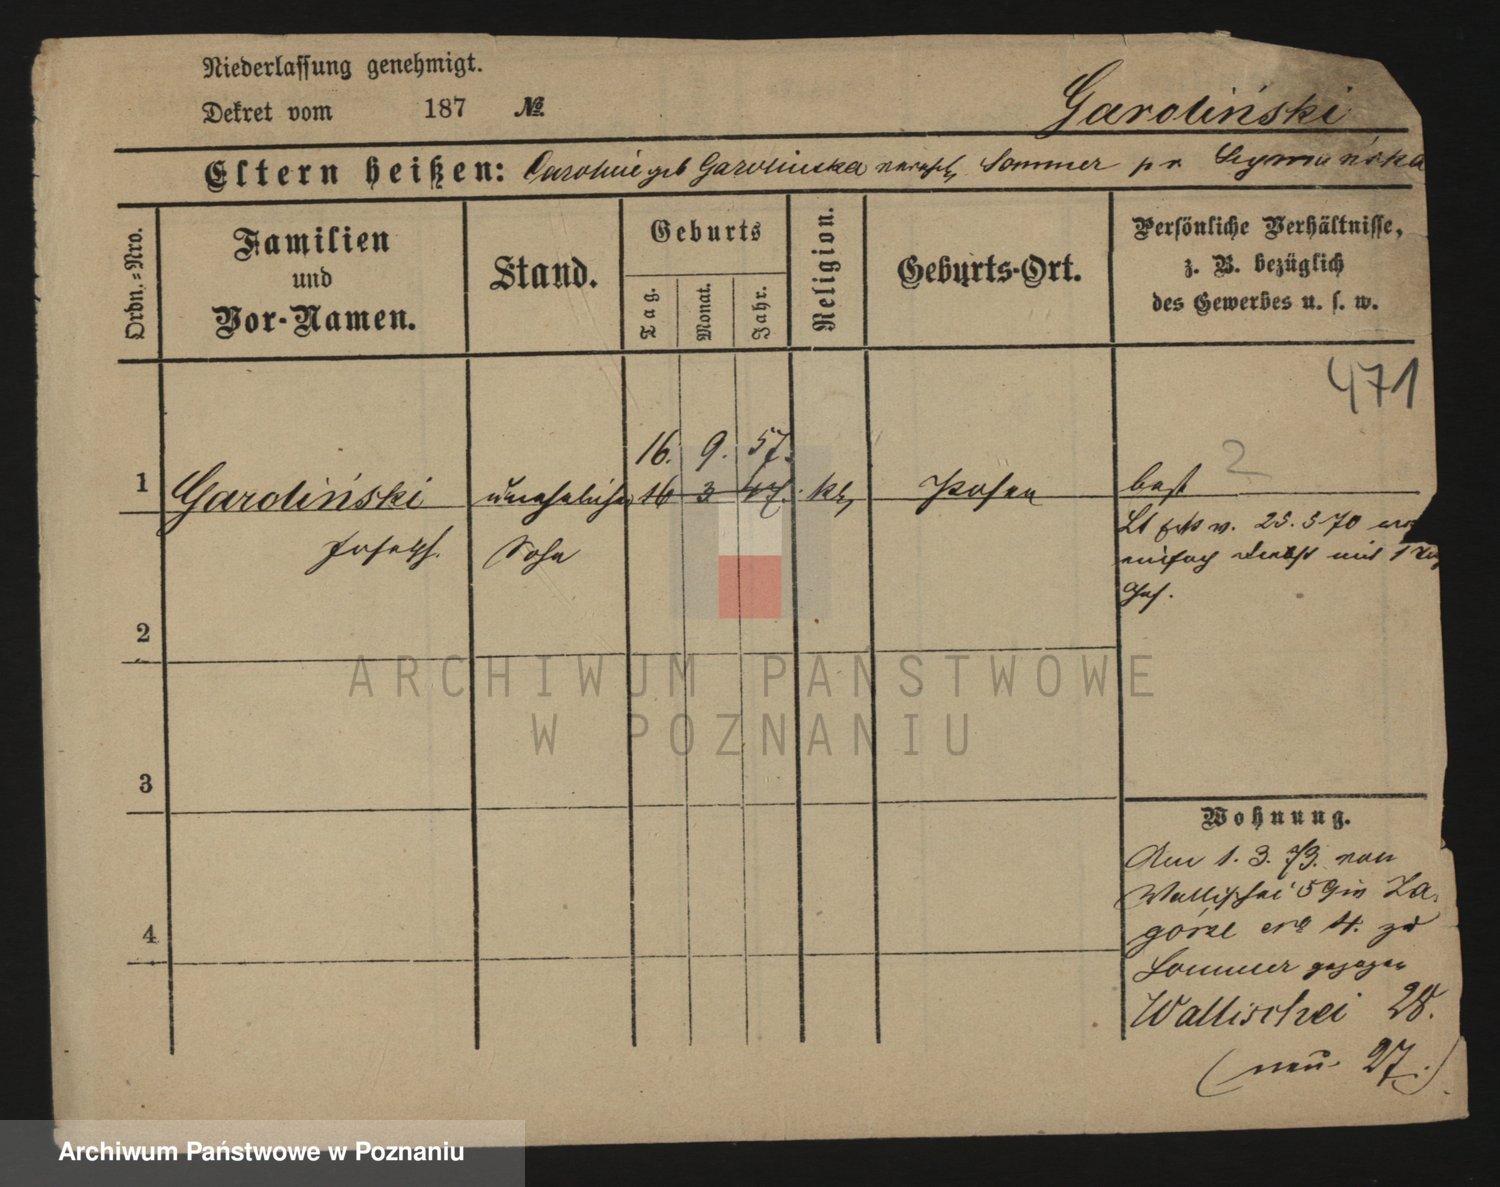 Niederlassung genehmigt.
Dekret vom 187 №
Garoliński
Eltern heißen: Caroline geb Garolinska verehl. Sommer
Ordn.-Nro.
Familien
und
Vor-Namen.
Stand.
Geburts
Tag.
Monat.
Jahr.
Religion.
Geburts-Ort.
Persönliche Verhältnisse,
z. B. bezüglich
des Gewerbes u. s. w.
471
2
16. 9. 57.
1 Garoliński unehelicher 16 3 47. kh, Posen best
Joseph. Sohn
v. 25. 5 70
einfach Diebst mit 1
2
3
4
Wohnung.
Am 1. 3. 73. von
Wallischei 59 in Za-
górze No 4. zu
Sommer gezogen
Wallischei 28.
(neu 27.)
ARCHIWUM PAŃSTWOWE
W POZNANIU
Archiwum Państwowe w Poznaniu